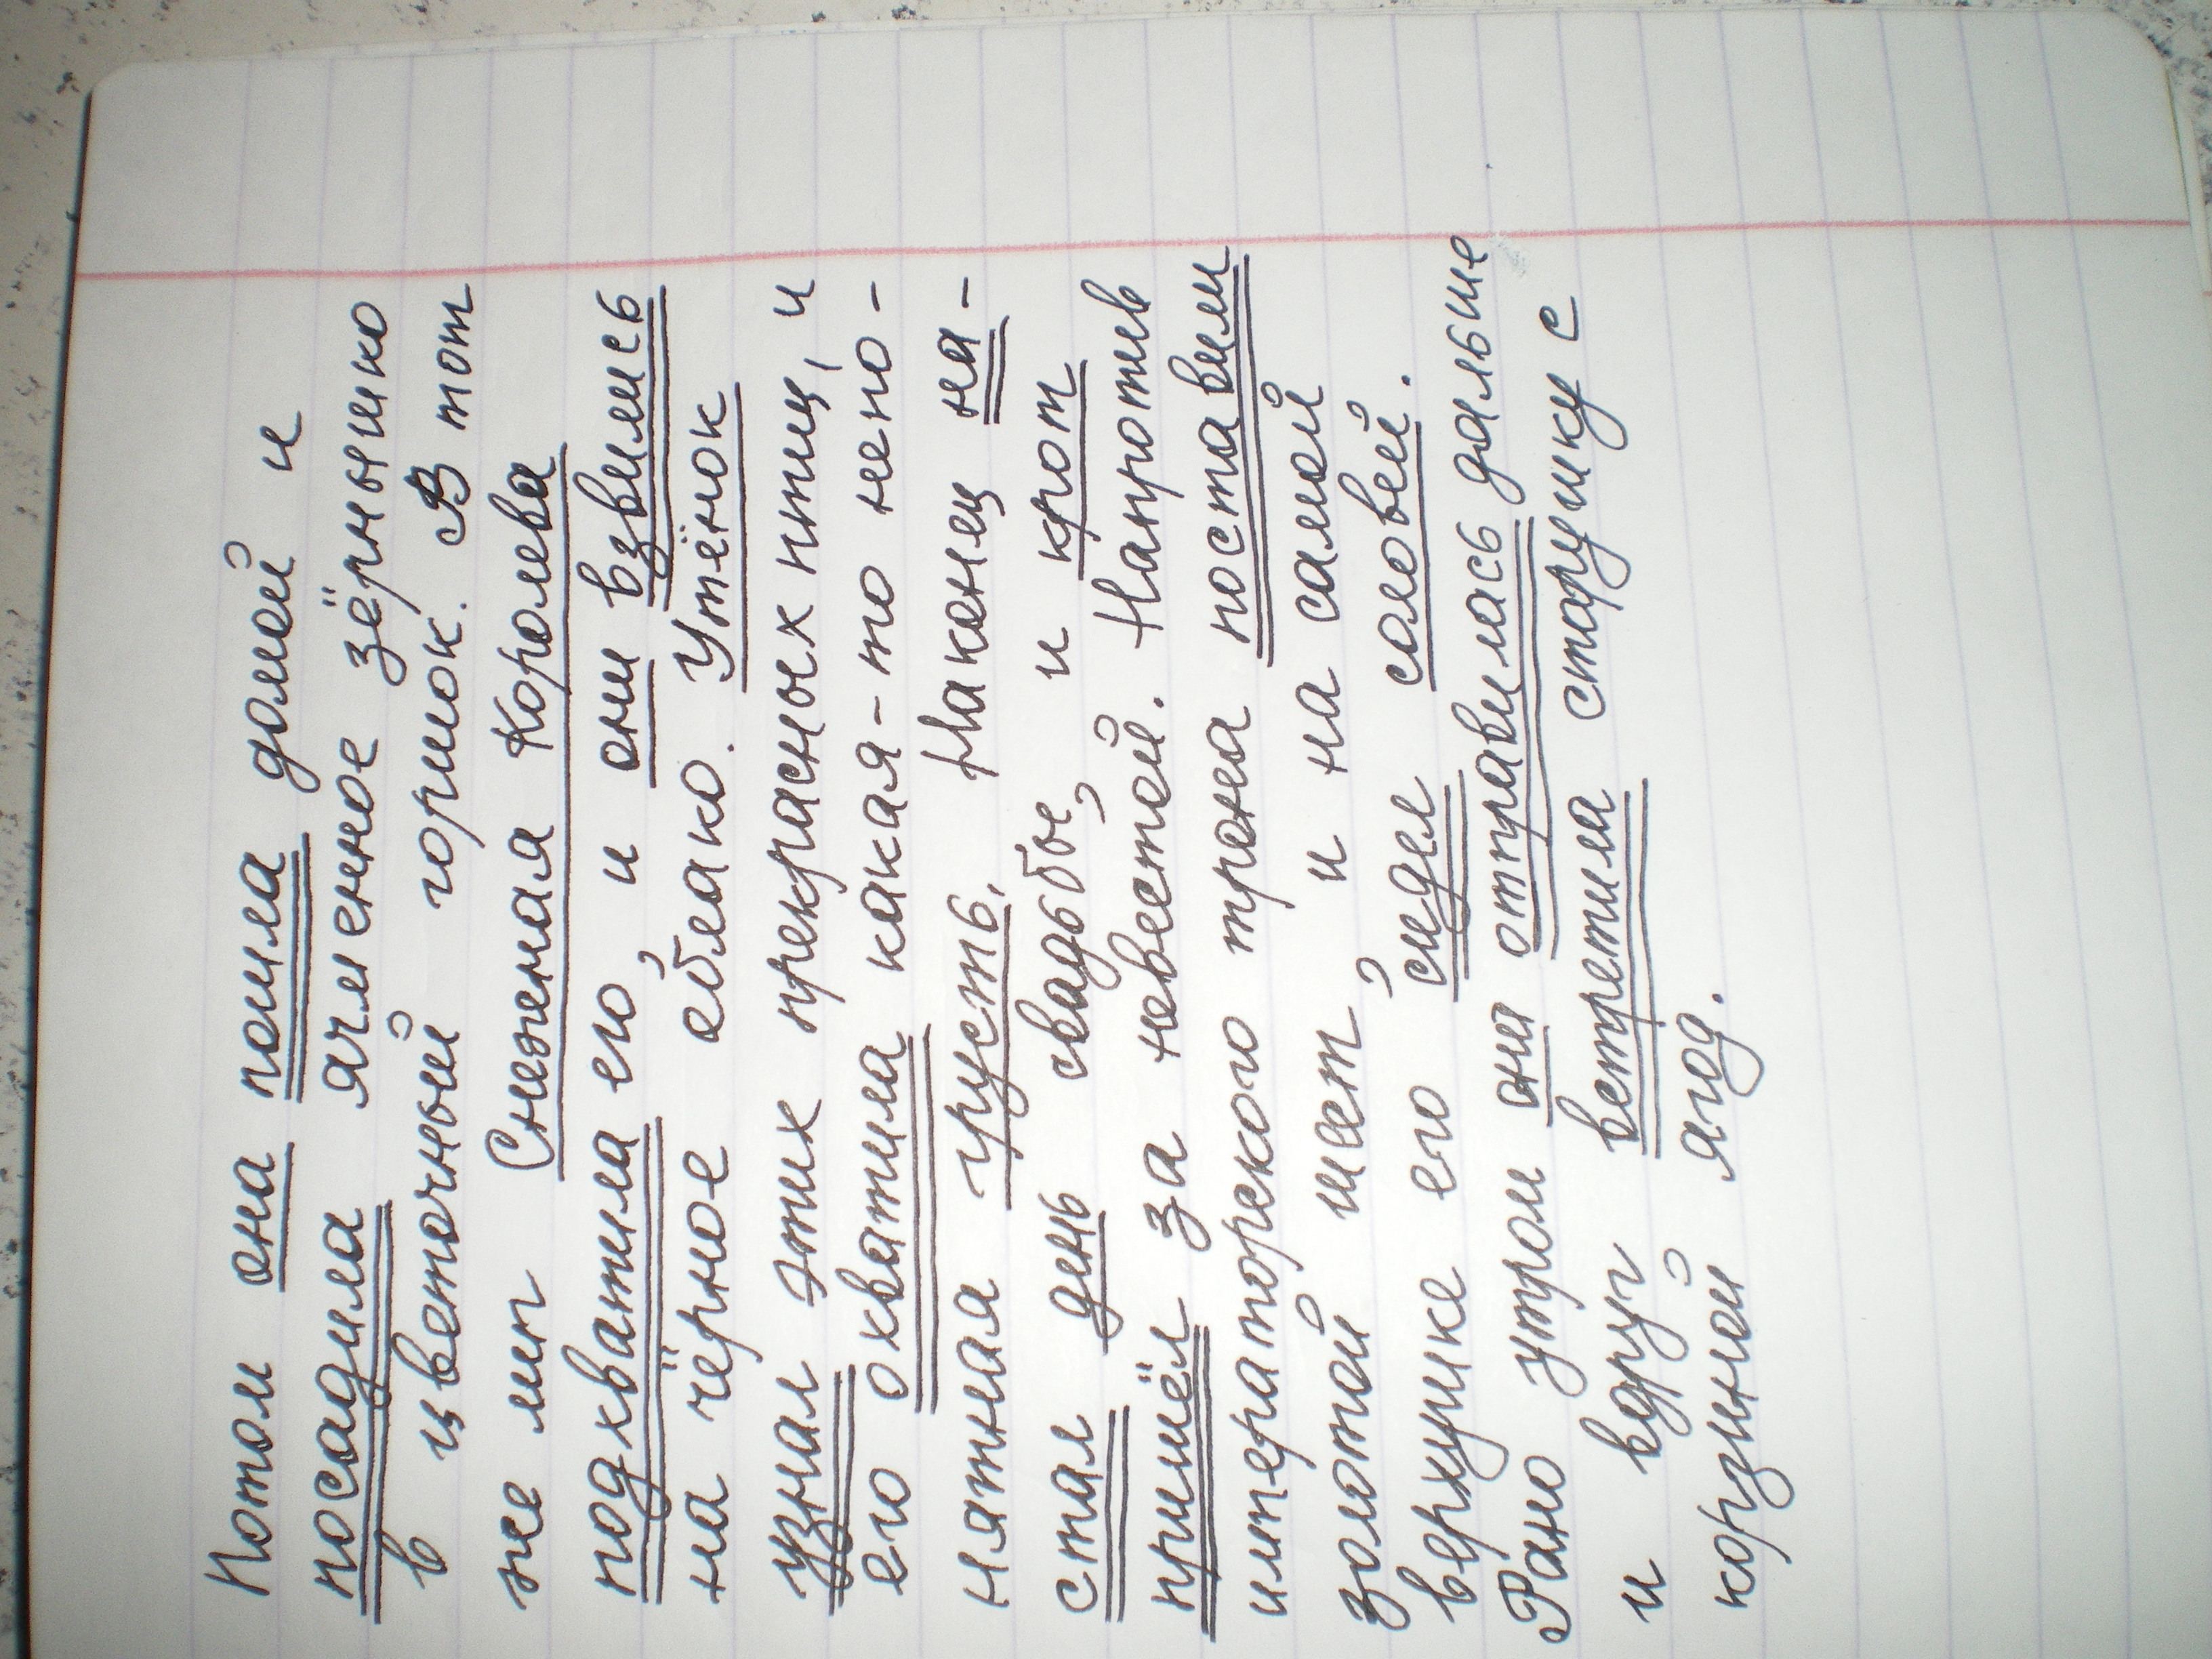 Потом она пошла домой и
посадила ячменное зёрнышко
в цветочный горшок. В тот
же миг Снежная Королева
подхватила его, и они взвились
на чёрное облако. Утёнок
узнал этих прекрасных птиц, и
его охватила какая-то непо-
нятная грусть. Наконец на-
стал день свадьбы, и крот
пришёл за невестой. Напротив
императорского трона поставили
золотой шест, и на самой
верхушке его сидел соловей.
Рано утром они отправилась дальше
и вдруг встретила старушку с
корзиной ягод.